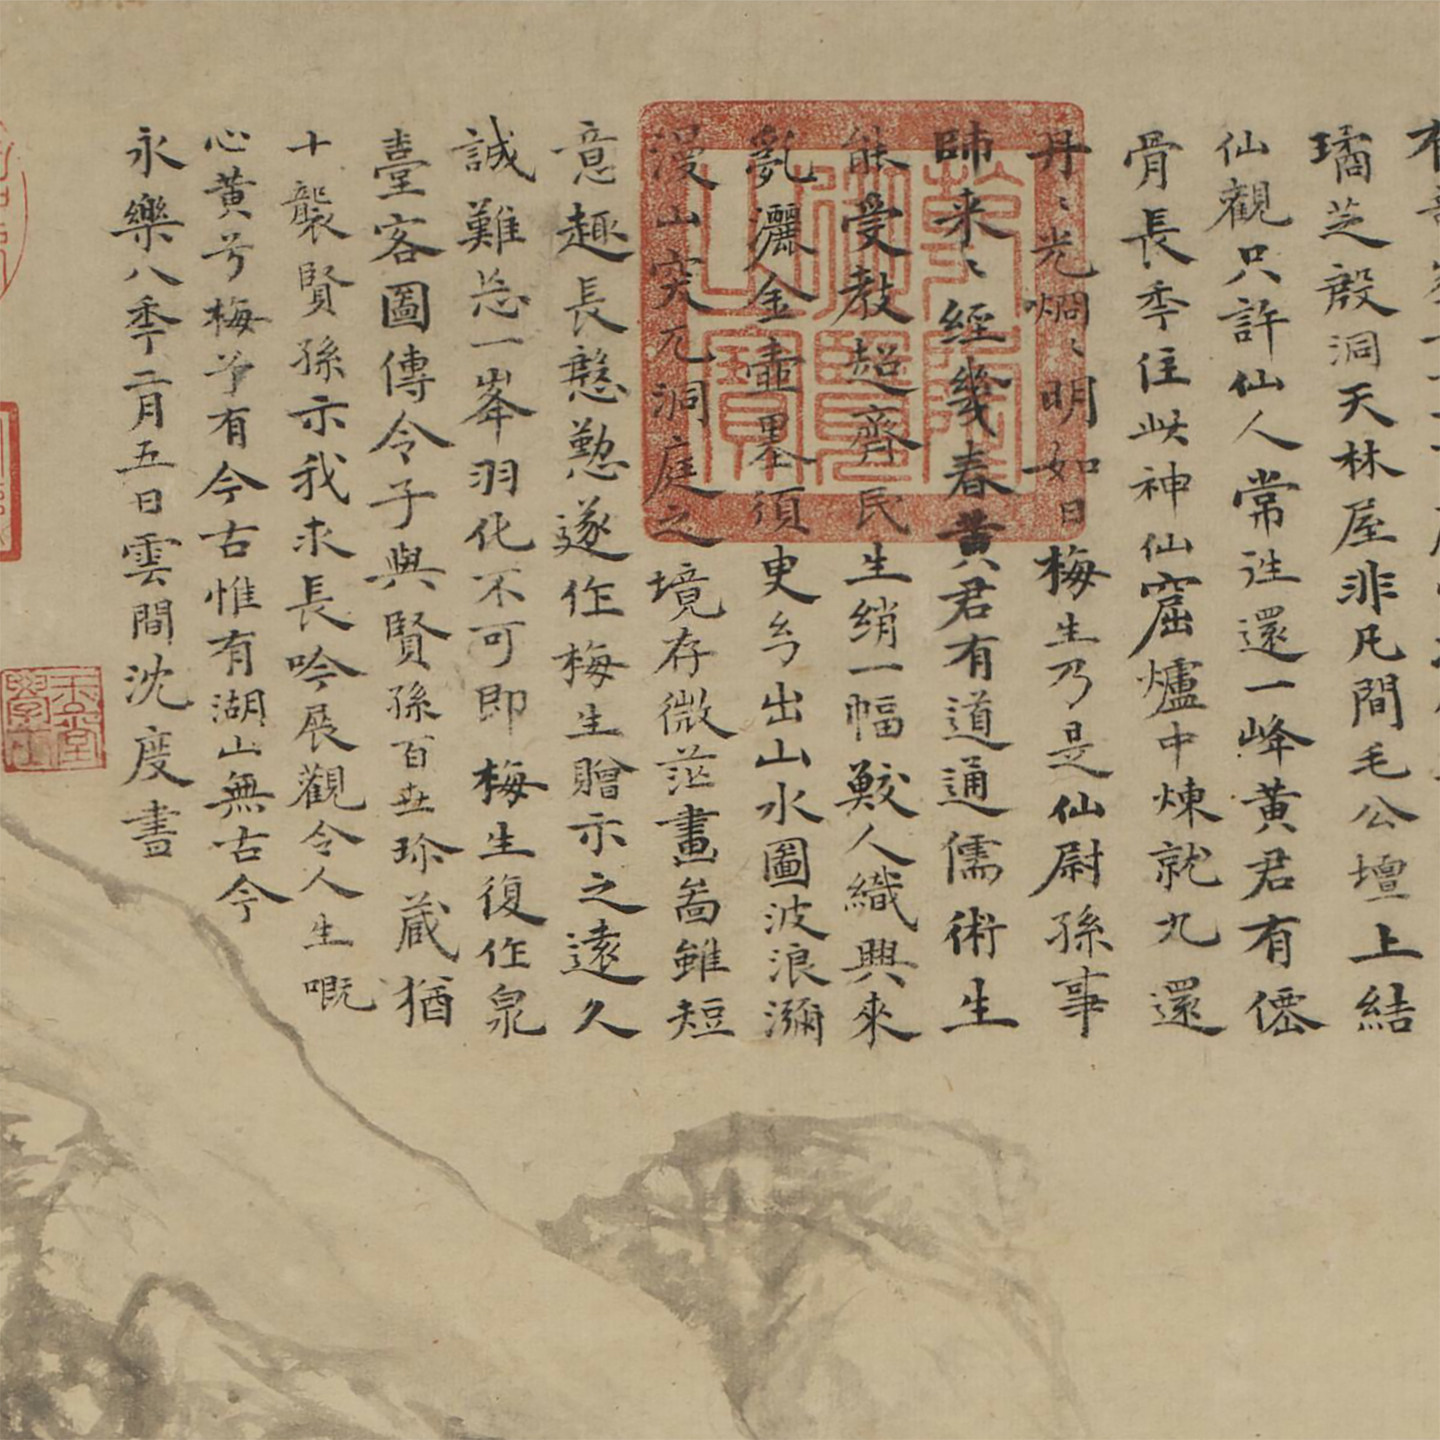 璚芝殿洞天林屋非凡間毛公壇上結
仙觀只許仙人常往還一峰黃君有僊
骨長年住此神仙窟爐中煉就九還
丹〻光爛〻明如日梅生乃是仙尉孫事
師来〻經幾春黃君有道通儒術生
能受教超齊民生綃一幅鮫人織興來
亂灑金壺墨須臾写出山水圖波浪瀰
漫山突兀洞庭之境存微茫畫啚雖短
意趣長慇懃遂作梅生贈示之遠久
誠難忘一峯羽化不可即梅生復作泉
臺客圖傳令子與賢孫百世珎藏猶
十襲賢孫示我求長吟展觀令人生嘅
心黃兮梅兮有今古惟有湖山無古今
永樂八季二月五日雲間沈度書
玉堂學士